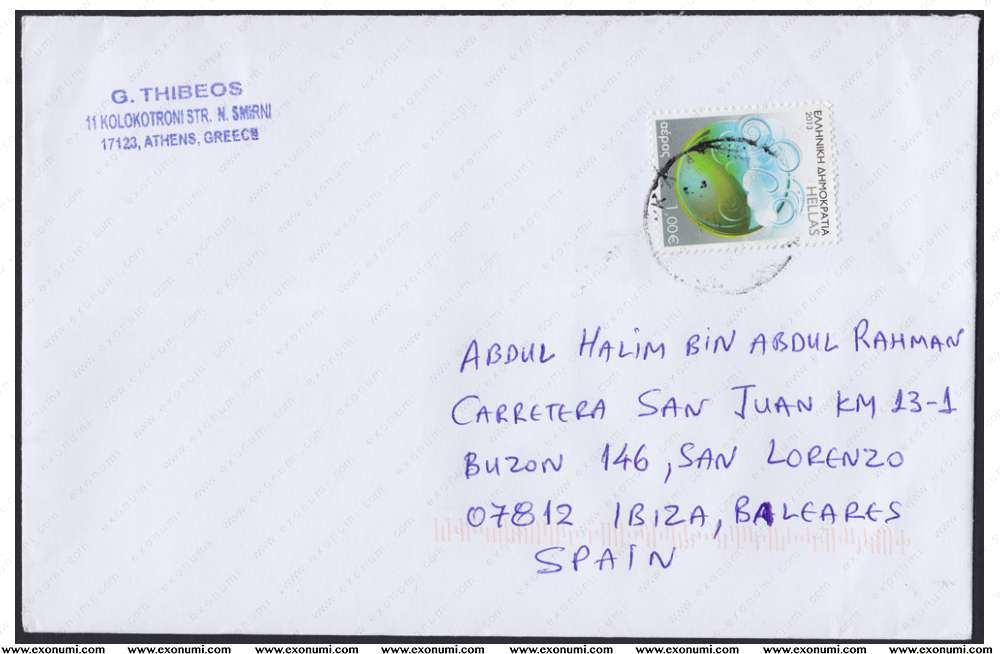 G. THIBEOS
11 KOLOKOTRONI STR. N. SMIRNI
17123, ATHENS, GREECE
ΕΛΛΗΝΙΚΗ ΔΗΜΟΚΡΑΤΙΑ
2013
HELLAS
αέρας
1,00€
ABDUL HALIM BIN ABDUL RAHMAN
CARRETERA SAN JUAN KM 13-1
BUZON 146, SAN LORENZO
07812 IBIZA, BALEARES
SPAIN
www.exonumi.com www.exonumi.com www.exonumi.com www.exonumi.com www.exonumi.com www.exonumi.com www.exonumi.com www.exonumi.com